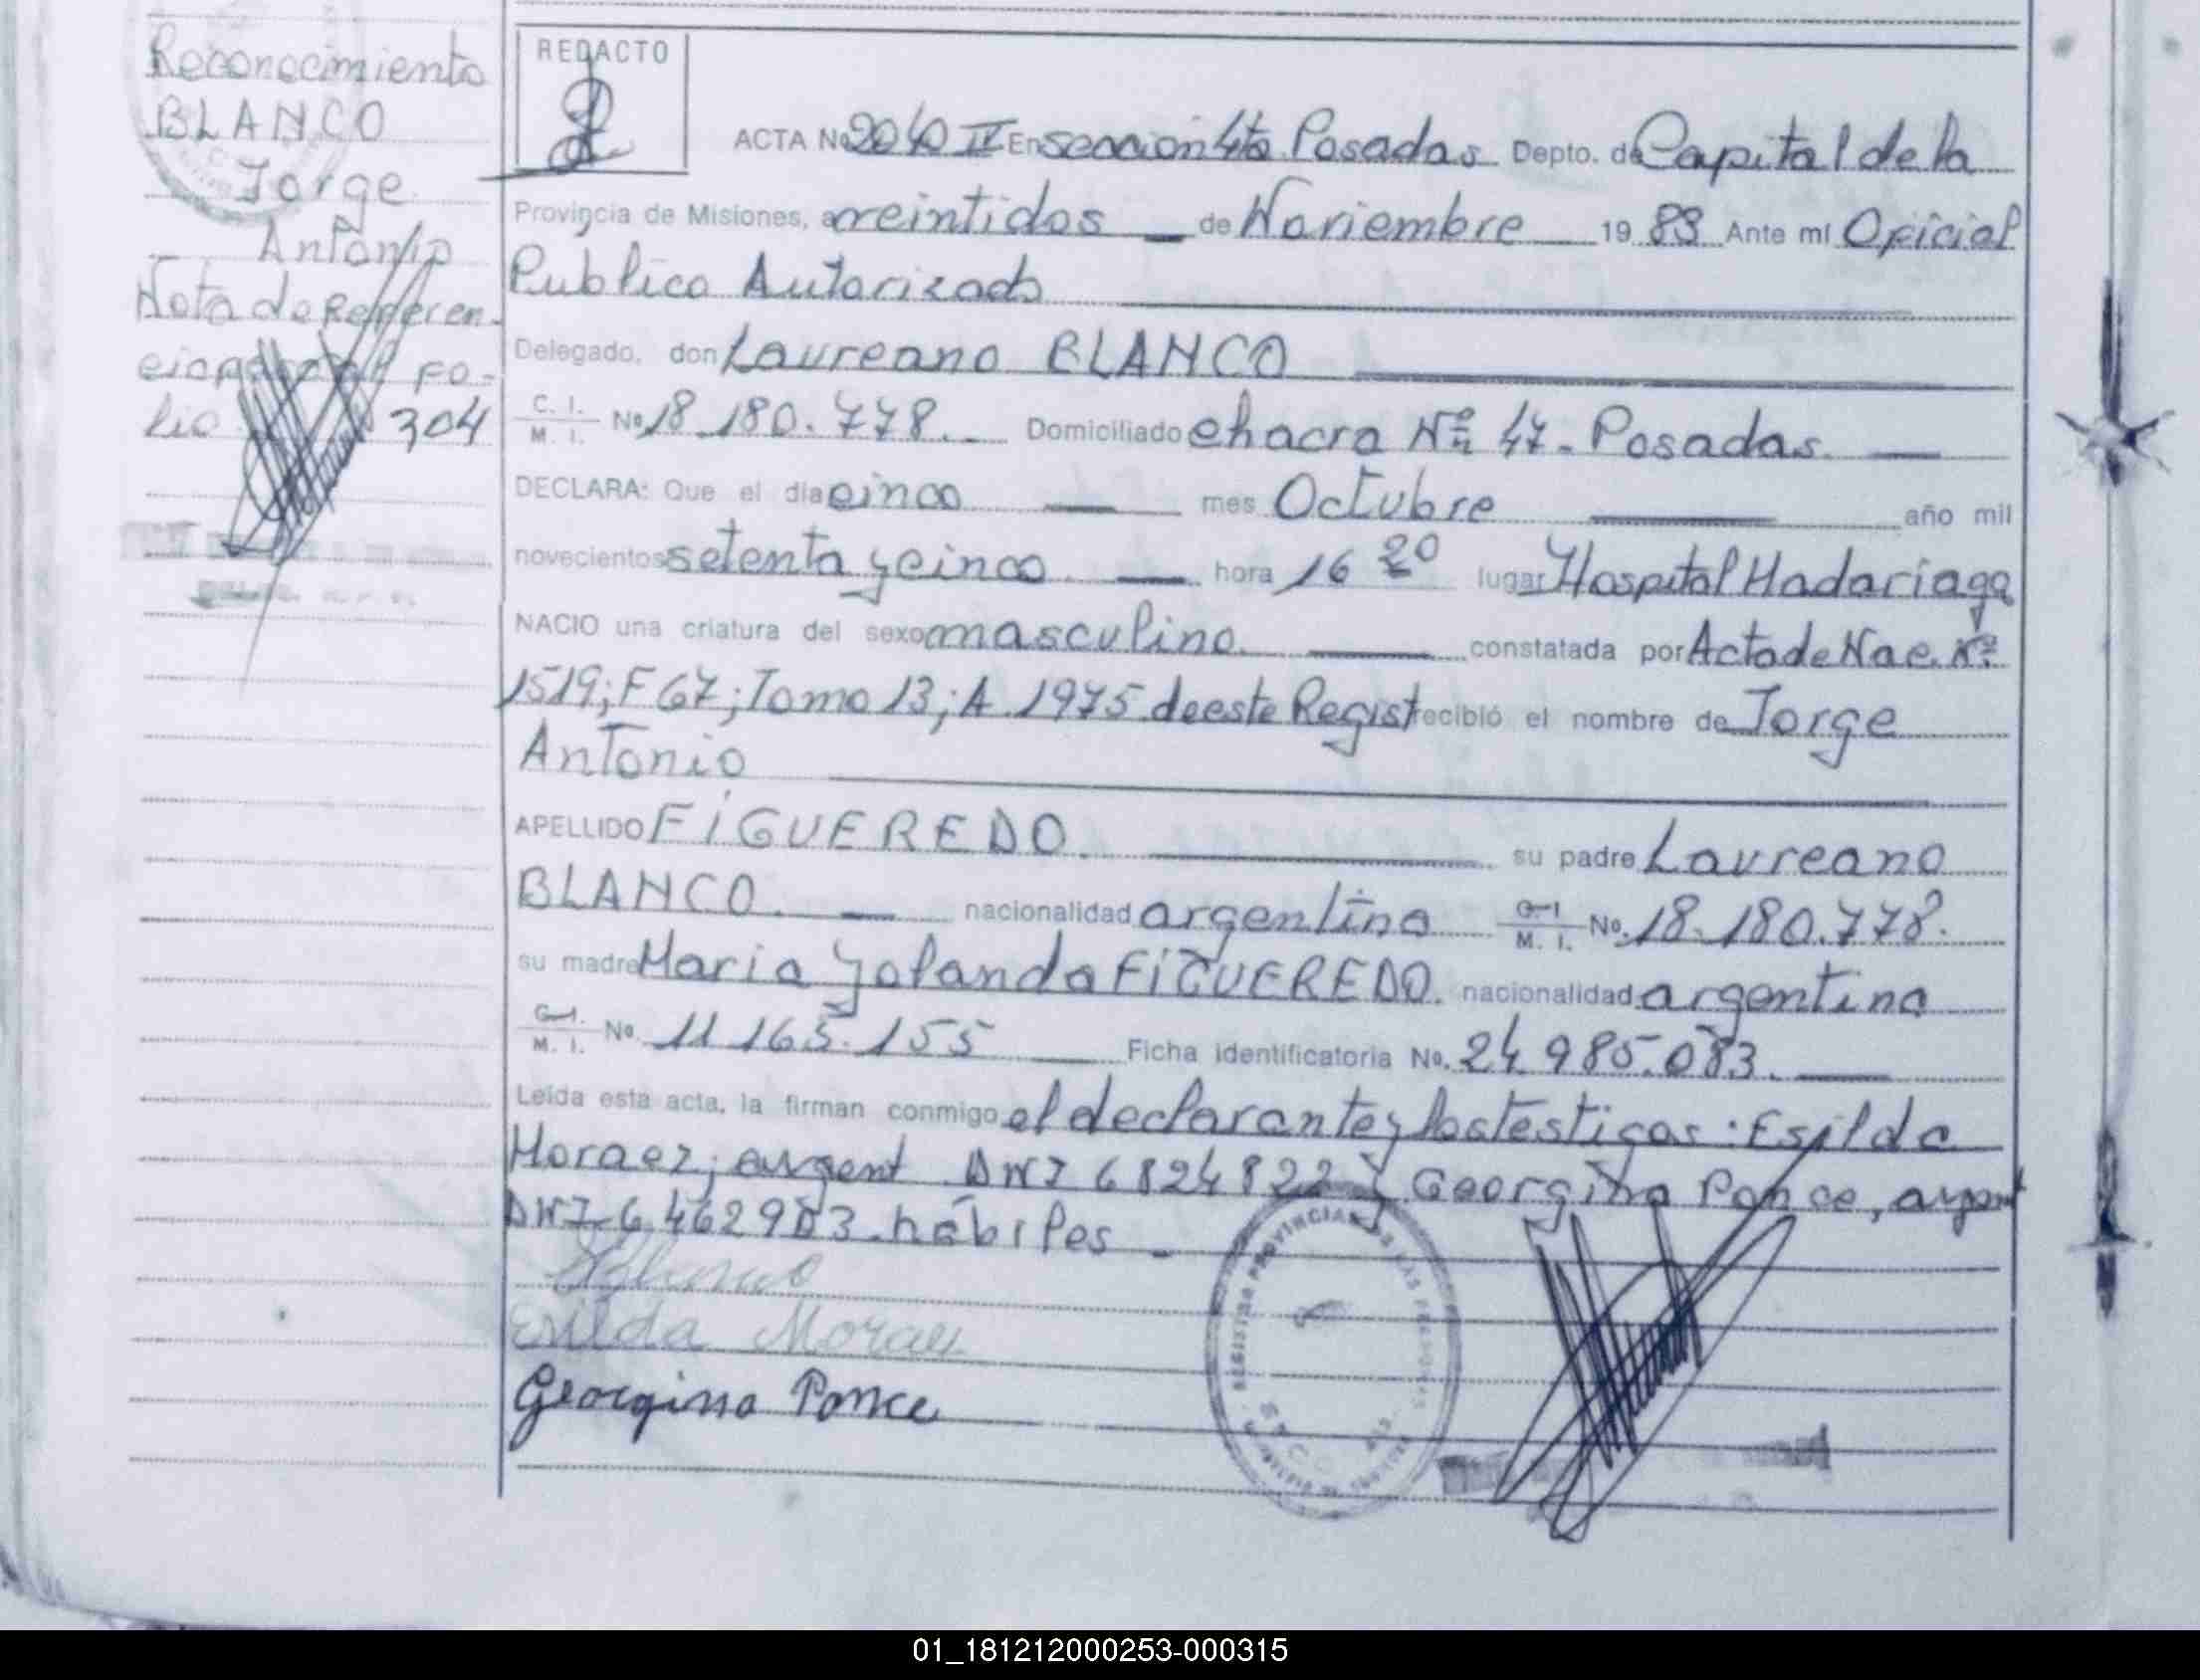 Reconocimiento
BLANCO
Jorge
Antonio
Nota de Referen-
cia al fo-
lio 304
REDACTO
ACTA Nº 2040 II En sección 4ta Posadas Depto. de Capital de la
Provincia de Misiones, a veintidos de Noviembre 1983 Ante mí Oficial
Publico Autorizado
Delegado, don Laureano BLANCO
C. I. M. I. Nº 18.180.778. Domiciliado chacra Nº 47 - Posadas.
DECLARA: Que el día cinco mes Octubre año mil
novecientos setenta y cinco hora 16 20 lugar Hospital Madariaga
NACIO una criatura del sexo masculino. constatada por Acta de Nac. Nº
1519; F 67; Tomo 13; A. 1975 de este Regist recibió el nombre de Jorge
Antonio
APELLIDO FIGUEREDO. su padre Laureano
BLANCO. nacionalidad argentino C. I. M. I. No. 18.180.778.
su madre Maria Yolanda FIGUEREDO. nacionalidad argentina
C. I. M. I. Nº 11.165.155 Ficha identificatoria No. 24.985.083.
Leída esta acta, la firman conmigo el declarante y los testigos: Esilda
Moraez; argent DNI 6824822 y Georgina Ponce, argent
DNI 6.462983 hábiles
Esilda Moraes
Georgina Ponce
01_181212000253-000315